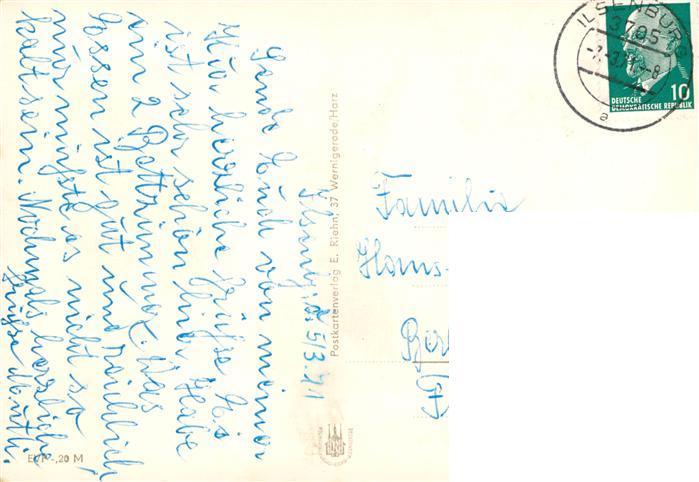 Ilsenbg, d. 5/3. 71
Sende Euch von meiner
Kur herzliche Grüße. Es
ist sehr schön hier. Habe
ein 2 Bettzimmer. Das
Essen ist gut und reichlich
nur müsste es nicht so
kalt sein. Nochmals herzliche
Grüße
Familie
Hans-
ILSENBURG
3705
-7.-3.71.-8
a
DEUTSCHE
DEMOKRATISCHE REPUBLIK
10
Postkartenverlag E. Riehn, 37 Wernigerode/Harz
EVP -,20 M